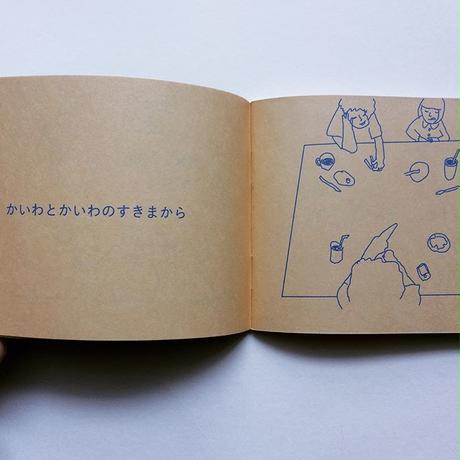 かいわとかいわのすきまから